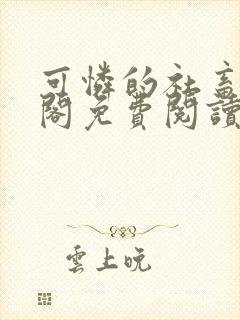 可憐的社畜
閣免費閱讀
雲上晚